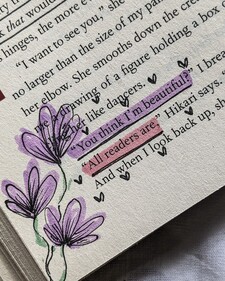 that would
s hinges, the more o
"I want to see you," she
no larger than the size of my pa
her elbow. She smooths down the cre
drawing of a figure holding a box
her like dancers.
"You think I'm beautiful?" I brea
"All readers are," Hikari says. "
And when I look back up, sh